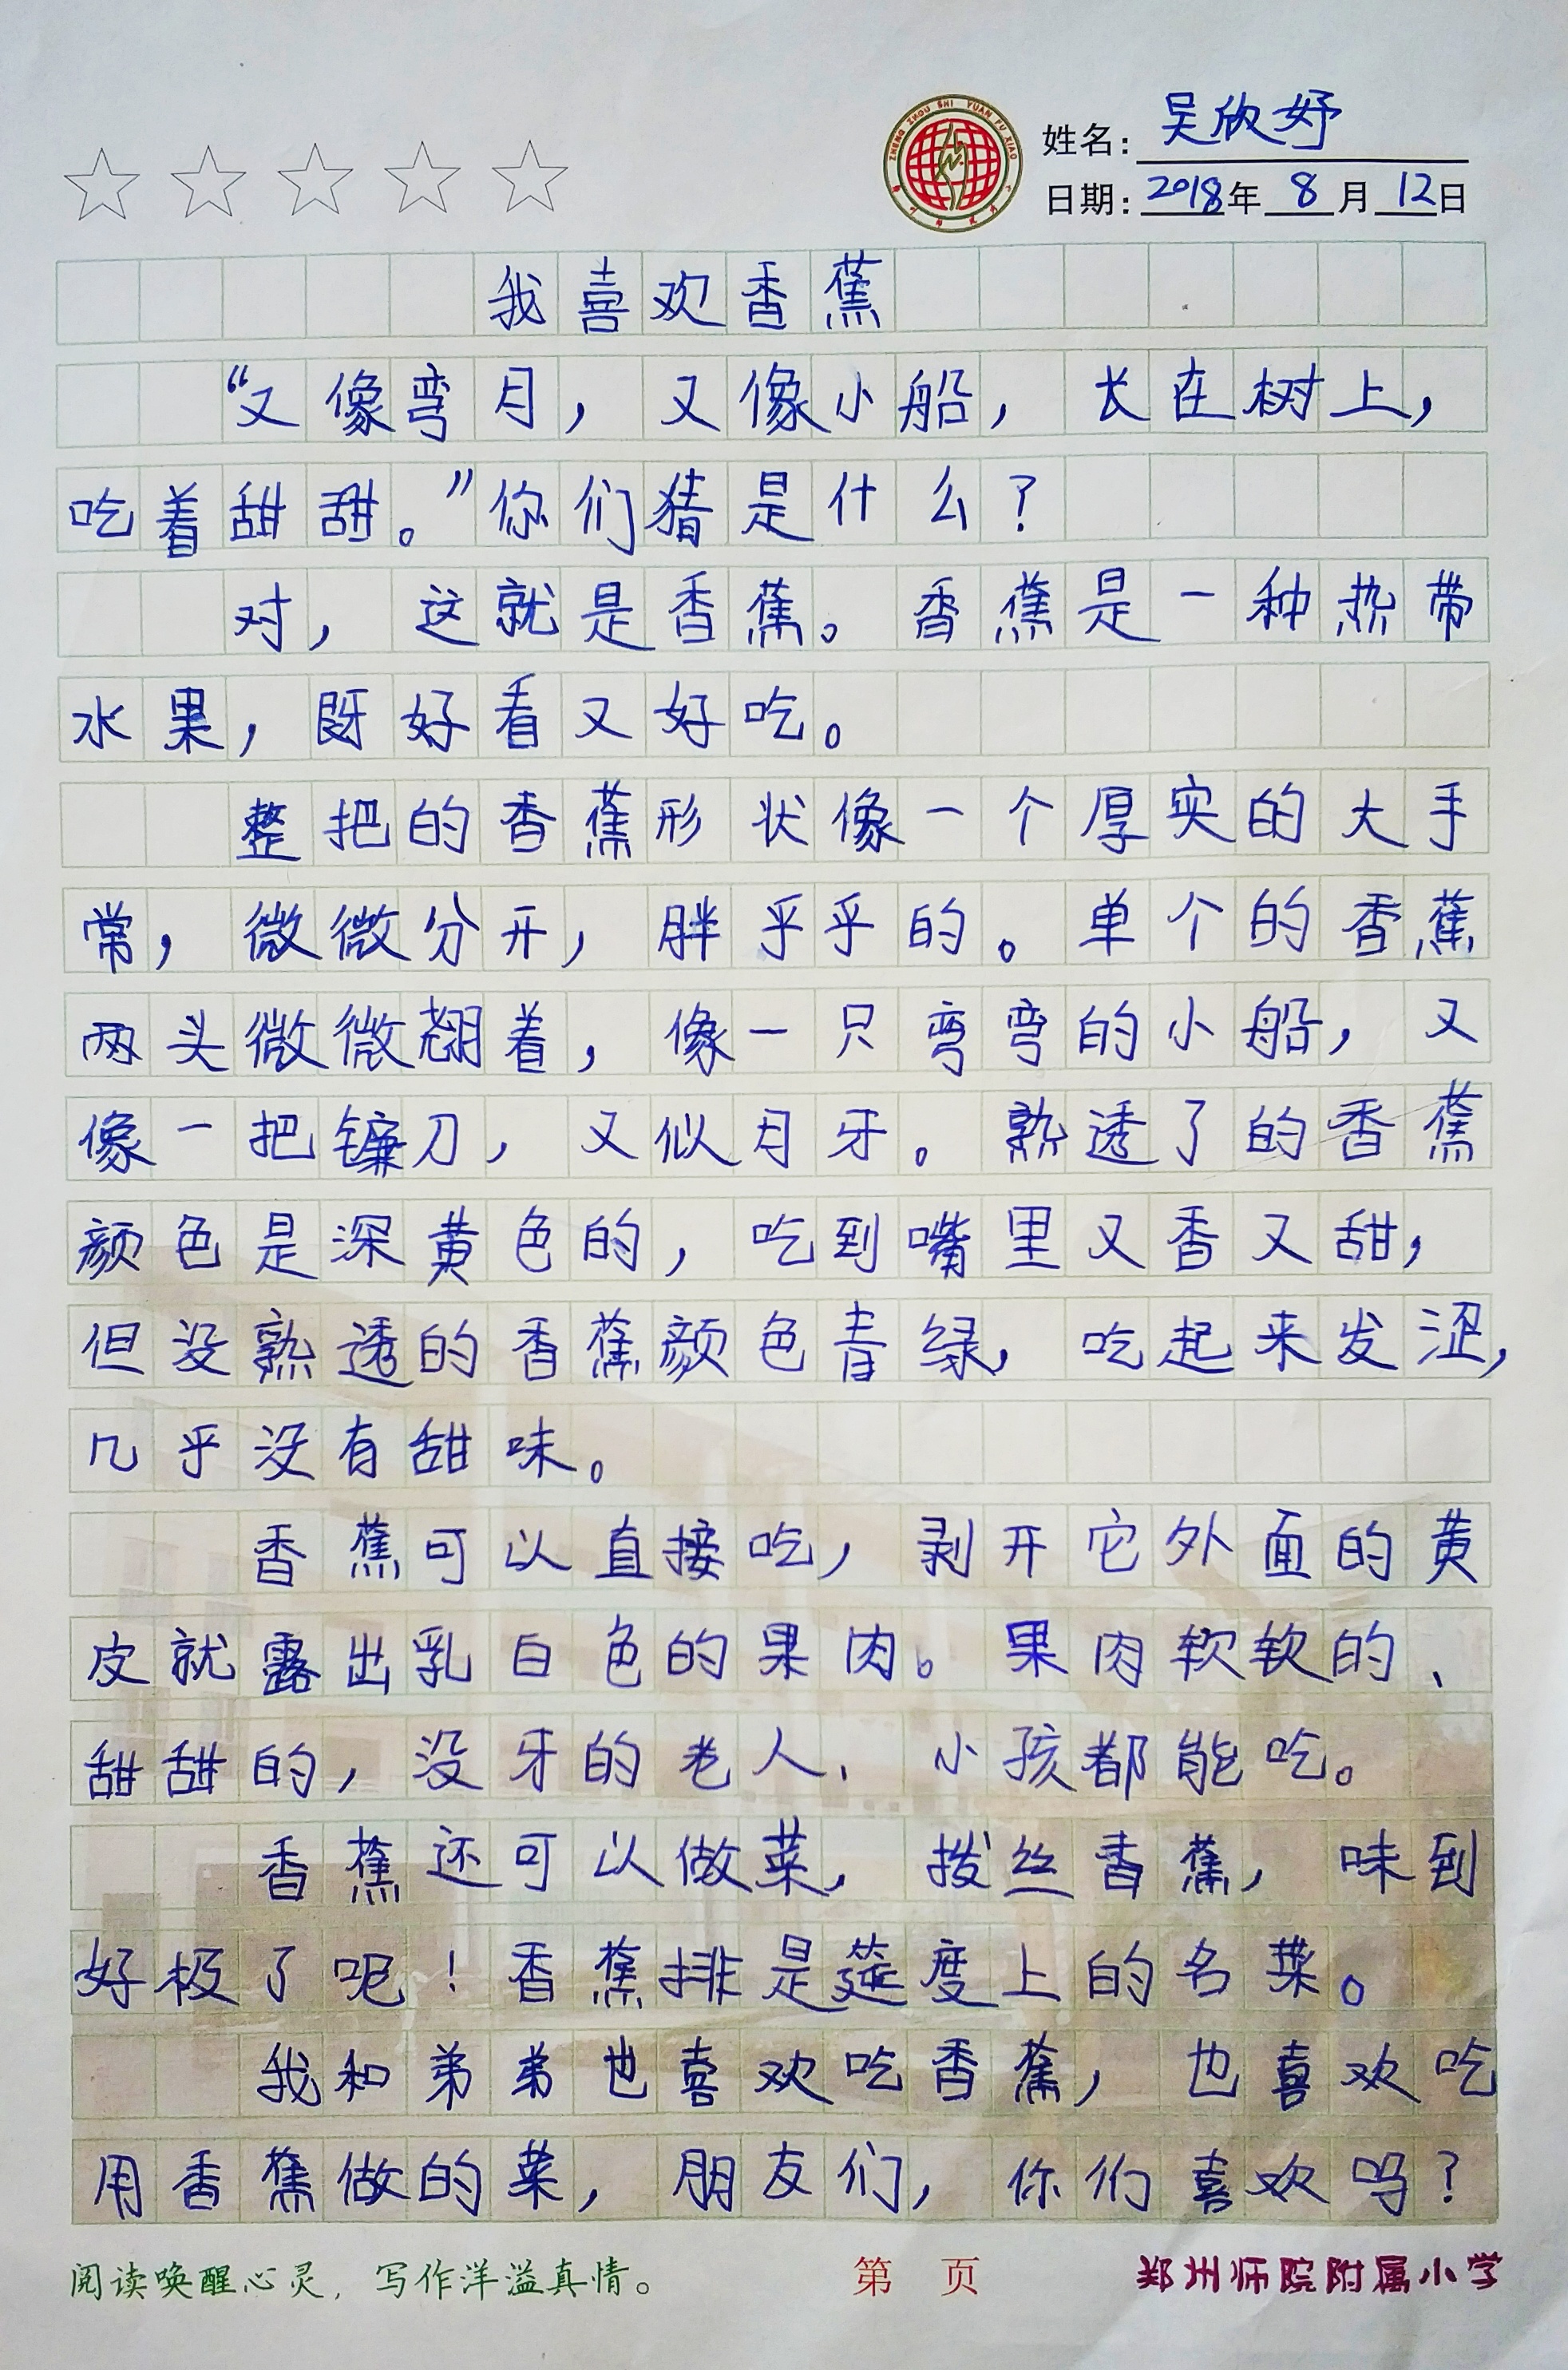 ZHENG ZHOU SHI YUAN FU XIAO
姓名：吴欣妤
日期：2018年8月12日
我喜欢香蕉
“又像弯月，又像小船，长在树上，
吃着甜甜。”你们猜是什么？
对，这就是香蕉。香蕉是一种热带
水果，既好看又好吃。
整把的香蕉形状像一个厚实的大手
常，微微分开，胖乎乎的。单个的香蕉
两头微微翘着，像一只弯弯的小船，又
像一把镰刀，又似月牙。熟透了的香蕉
颜色是深黄色的，吃到嘴里又香又甜，
但没熟透的香蕉颜色青绿，吃起来发涩，
几乎没有甜味。
香蕉可以直接吃，剥开它外面的黄
皮就露出乳白色的果肉。果肉软软的、
甜甜的，没牙的老人、小孩都能吃。
香蕉还可以做菜，拨丝香蕉，味到
好极了呢！香蕉排是筵度上的名菜。
我和弟弟也喜欢吃香蕉，也喜欢吃
用香蕉做的菜，朋友们，你们喜欢吗？
阅读唤醒心灵，写作洋溢真情。 第 页 郑州师院附属小学